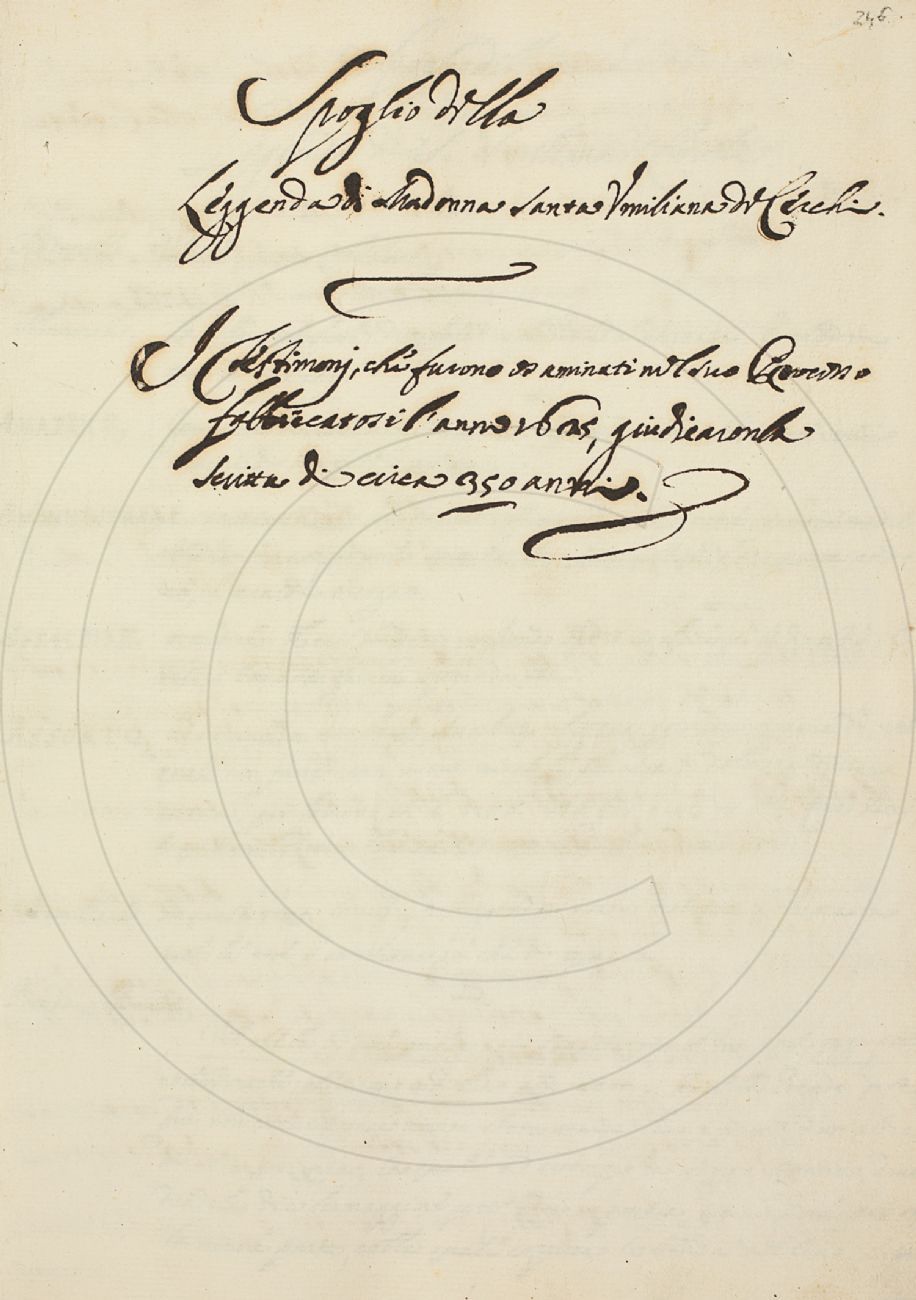 246.
Spoglio della
Leggenda di Madonna Santa Vmiliana de Cerchi.
I Testimonj, che furono esaminati nel suo Processo
fabbricatosi l'anno 1625, giudicaronla
scritta di circa 350 anni.